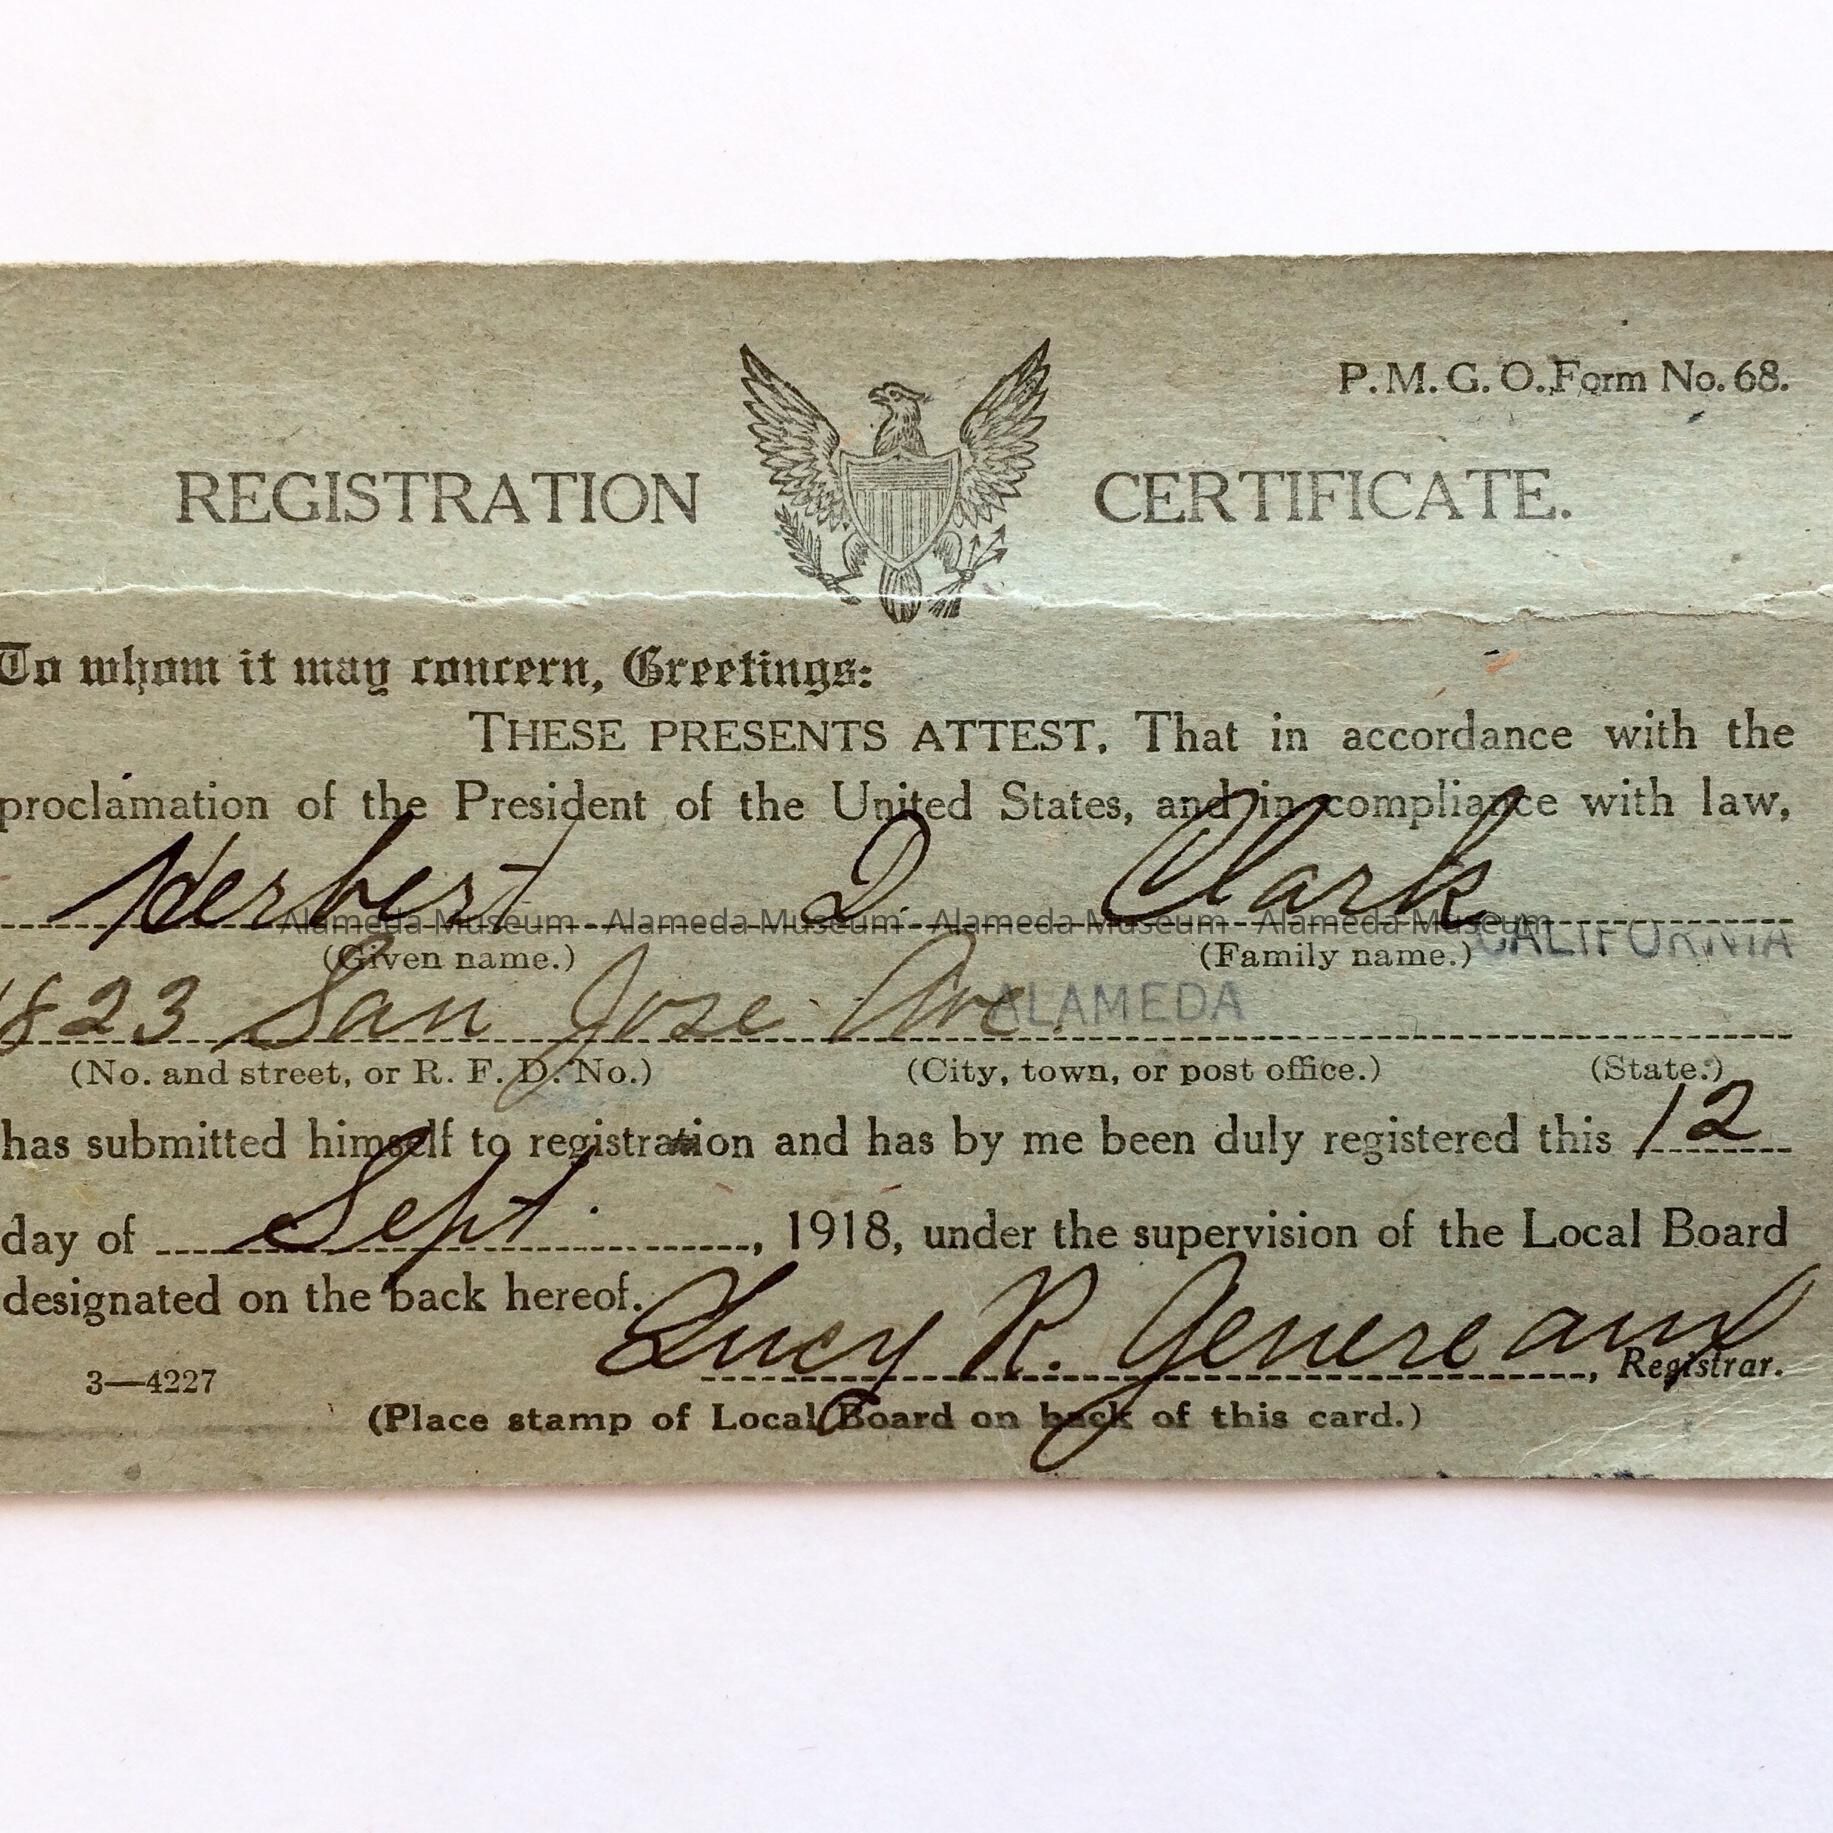 P. M. G. O. Form No. 68.
REGISTRATION CERTIFICATE.
To whom it may concern, Greetings:
THESE PRESENTS ATTEST, That in accordance with the
proclamation of the President of the United States, and in compliance with law,
Herbert D. Clark
Alameda Museum - Alameda Museum - Alameda Museum - Alameda Museum
(Given name.) (Family name.) CALIFORNIA
1823 San Jose Ave. ALAMEDA
(No. and street, or R. F. D. No.) (City, town, or post office.) (State.)
has submitted himself to registration and has by me been duly registered this 12
day of Sept., 1918, under the supervision of the Local Board
designated on the back hereof.
Lucy R. Genereaux, Registrar.
3—4227
(Place stamp of Local Board on back of this card.)